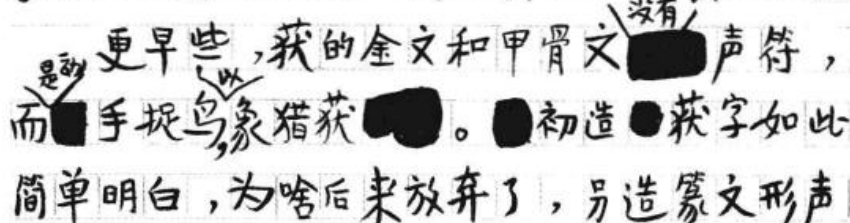 更早些，获的金文和甲骨文没有声符，
而是画手捉鸟，以象猎获。初造获字如此
简单明白，为啥后来放弃了，另造篆文形声